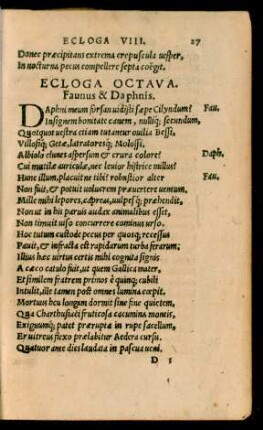 ECLOGA VIII. 27
Donec præcipitans extrema crepuscula uesper,
In nocturna pecus compellere septa coëgit.
ECLOGA OCTAVA.
Faunus & Daphnis.
Daphni meum forsan uidisti sæpe Cilyndum? Fau.
Insignem bonitate canem, nulliq; secundum,
Quotquot uestra etiam tutantur ouilia Bessi,
Villosiq; Getæ, latratoresq; Molossi.
Albiola clunes aspersum & crura colore? Daph.
Cui mutilæ auriculæ, nec leuior histrice millus?
Hunc illum, placuit ne tibi? robustior alter Fau.
Non fuit, & potuit uolucrem præuertere uentum,
Mille mihi lepores, capreas, uulpesq; prehendit,
Non ut in his paruis audax animalibus esset,
Non timuit uiso concurrere cominus urso.
Hoc tutum custode pecus per quosq; recessus
Pauit, & infracta est rapidarum turba ferarum;
Illius hæc uirtus certis mihi cognita signis
A cæco catulo fuit, ut quem Gallica mater,
Et similem fratrem prinos è quinq; cubili
Intulit, ille tamen post omnes lumina cœpit.
Mortuus heu longum dormit sine fine quietem,
Quà Charthusiaci fruticosa cacumina montis,
Exiguumq; patet prærupta in rupe sacellum,
Er uitreus fixo prælabitur Aedera cursu.
Quatuor ante dies laudata in pascua ueni.
D 3